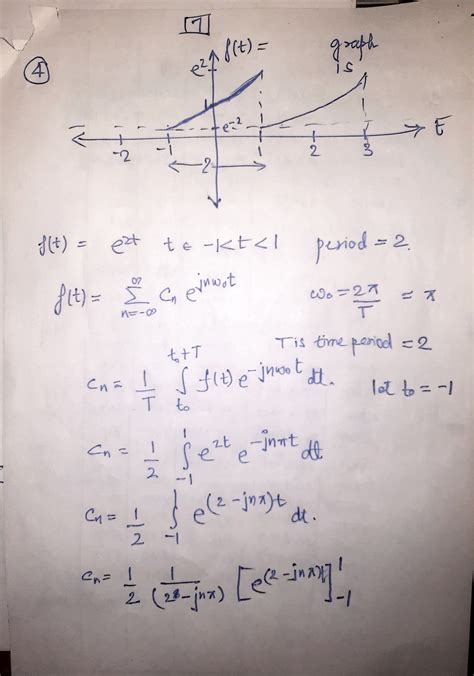 7
④ f(t) = graph is
e² 
e⁻²
-2 -1 1 2 3 t
2
f(t) = e^{2t} t ∈ -1<t<1 period = 2.
f(t) = ∑_{n=-∞}^{∞} Cₙ e^{jnω₀t} ω₀ = 2π/T = π
T is time period = 2
Cₙ = 1/T ∫_{t₀}^{t₀+T} f(t) e^{-jnω₀t} dt. let t₀ = -1
Cₙ = 1/2 ∫_{-1}^{1} e^{2t} e^{-jnπt} dt
Cₙ = 1/2 ∫_{-1}^{1} e^{(2-jnπ)t} dt.
Cₙ = 1/2 1/(2-jnπ) [e^{(2-jnπ)t}]_{-1}^{1}